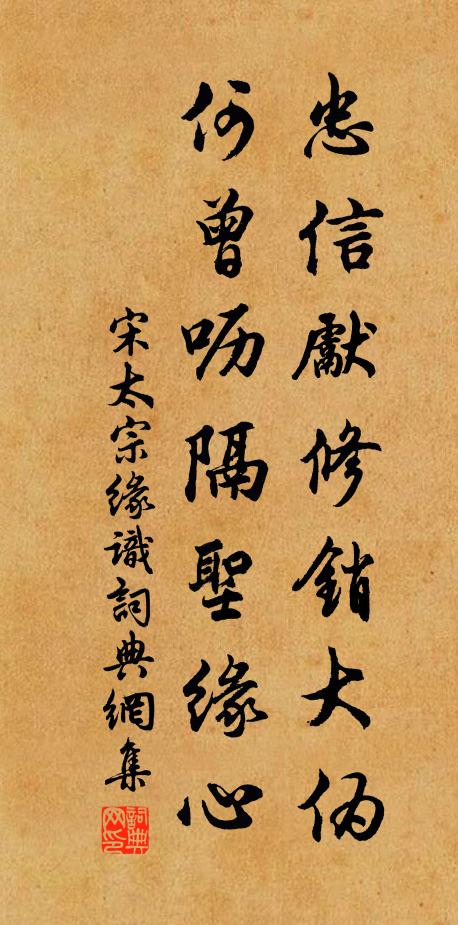 忠信獻修銷大伪
何曾呖隔聖緣心
宋太宗緣識詞典網集
詞典网印